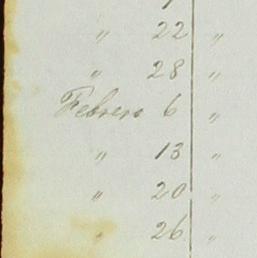 " 22 "
" 28 "
Febrero 6 "
" 13 "
" 20 "
" 26 "